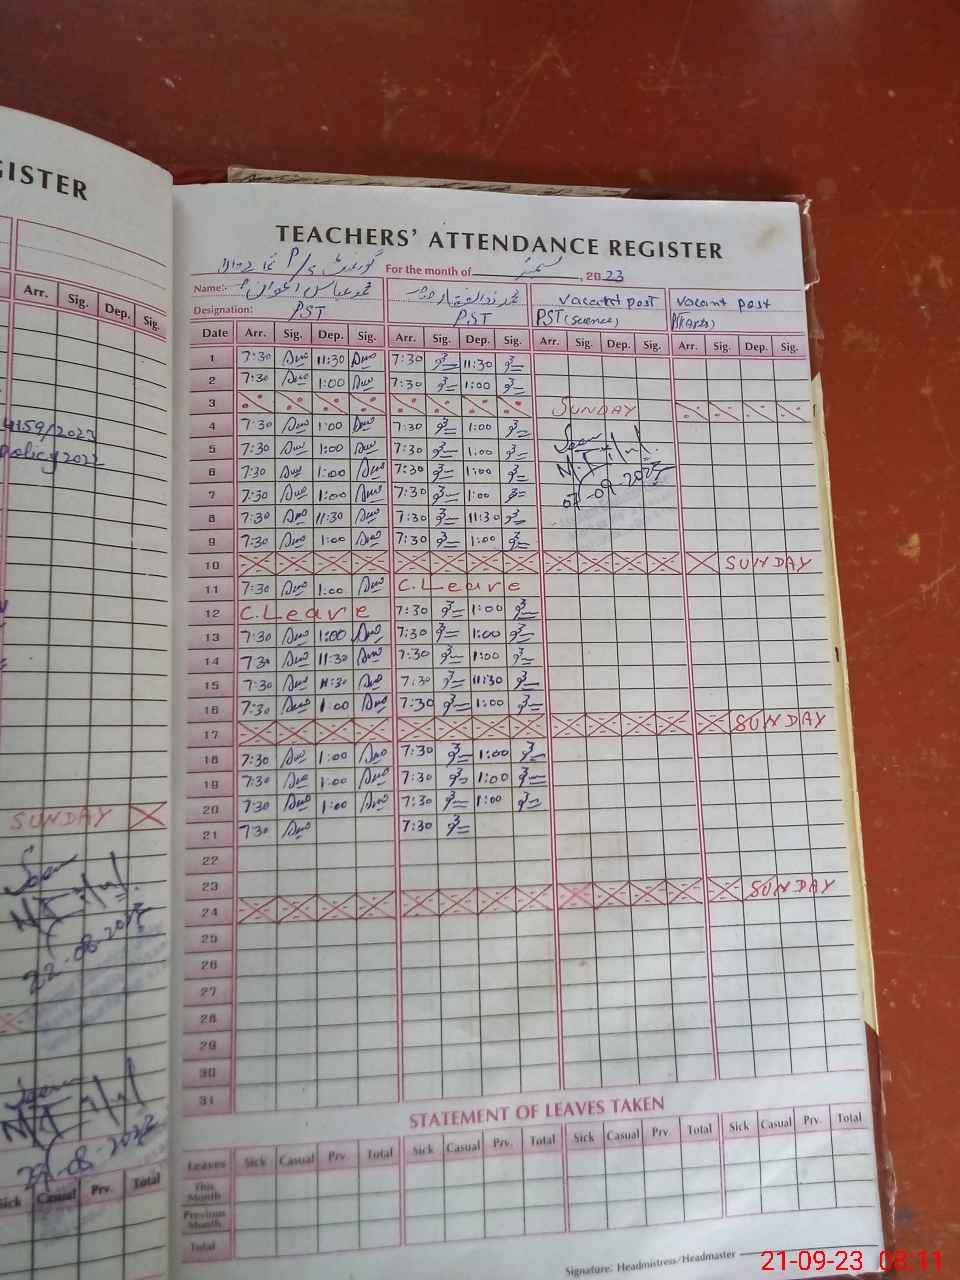 GISTER
Arr. Sig. Dep. Sig.
4159/2022
policy 2022
SUNDAY
Seen
22-08-2023
Seen
29-08-2023
Sick Casual Prv. Total
TEACHERS' ATTENDANCE REGISTER
گورنمنٹ P/S
For the month of ستمبر, 2023
Name:- محمد عباس اعوان محمد ذوالفقار vacant post vacant post
Designation: PST PST PST(Science) PST(Arts)
Date Arr. Sig. Dep. Sig. Arr. Sig. Dep. Sig. Arr. Sig. Dep. Sig. Arr. Sig. Dep. Sig.
1 7:30 11:30 7:30 11:30
2 7:30 1:00 7:30 1:00
3 SUNDAY
4 7:30 1:00 7:30 1:00
Seen
5 7:30 1:00 7:30 1:00
6 7:30 1:00 7:30 1:00
7 7:30 1:00 7:30 1:00
07-09-2023
8 7:30 11:30 7:30 11:30
9 7:30 1:00 7:30 1:00
10 SUNDAY
11 7:30 1:00 C.Leave
12 C.Leave 7:30 1:00
13 7:30 1:00 7:30 1:00
14 730 11:30 7:30 1:00
15 7:30 11:30 7:30 11:30
16 7:30 1:00 7:30 1:00
17 SUNDAY
18 7:30 1:00 7:30 1:00
19 7:30 1:00 7:30 1:00
20 7:30 1:00 7:30 1:00
21 7:30 7:30
22
23
24 SUNDAY
25
26
27
28
29
30
31
STATEMENT OF LEAVES TAKEN
Leaves Sick Casual Prv. Total Sick Casual Prv. Total Sick Casual Prv. Total Sick Casual Prv. Total
This Month
Previous Month
Total
Signature: Headmistress/Headmaster
21-09-23 08:11